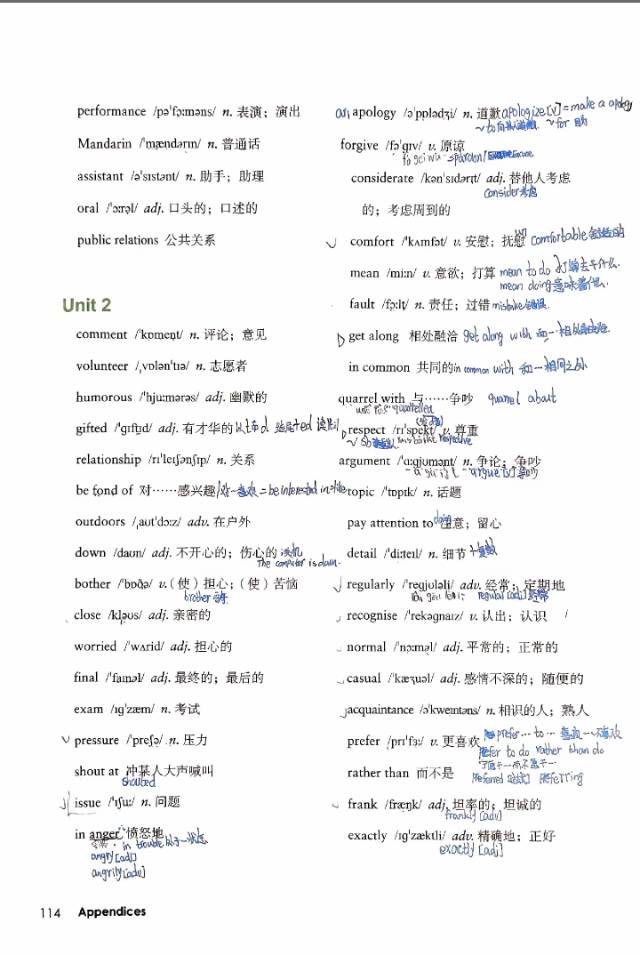 performance /pə'fɔːməns/ n. 表演；演出
Mandarin /'mændərɪn/ n. 普通话
assistant /ə'sɪstənt/ n. 助手；助理
oral /'ɔːrəl/ adj. 口头的；口述的
public relations 公共关系
Unit 2
comment /'kɒment/ n. 评论；意见
volunteer /ˌvɒlən'tɪə/ n. 志愿者
humorous /'hjuːmərəs/ adj. 幽默的
gifted /'gɪftɪd/ adj. 有才华的
relationship /rɪ'leɪʃənʃɪp/ n. 关系
be fond of 对……感兴趣 = be interested in
outdoors /ˌaʊt'dɔːz/ adv. 在户外
down /daʊn/ adj. 不开心的；伤心的
The computer is down.
bother /'bɒðə/ v.（使）担心；（使）苦恼
brother
close /kləʊs/ adj. 亲密的
worried /'wʌrid/ adj. 担心的
final /'faɪnəl/ adj. 最终的；最后的
exam /ɪg'zæm/ n. 考试
pressure /'preʃə/ n. 压力
shout at 冲某人大声喊叫
shouted
issue /'ɪʃuː/ n. 问题
in anger 愤怒地
in trouble
angry [adj]
angrily [adv]
114 Appendices
an apology /ə'pɒlədʒi/ n. 道歉 apologize [v] = make a apology
forgive /fə'gɪv/ v. 原谅
considerate /kən'sɪdərɪt/ adj. 替他人考虑
consider 考虑
的；考虑周到的
comfort /'kʌmfət/ v. 安慰；抚慰 comfortable
mean /miːn/ v. 意欲；打算 mean to do 打算去干什么.
mean doing 意味着什么.
fault /fɔːlt/ n. 责任；过错 mistake
get along 相处融洽 get along with 和一相处
in common 共同的 in common with 和一相同之处
quarrel with 与……争吵 quarrel about
quarrelled
respect /rɪ'spekt/ v. 尊重
argument /'ɑːgjʊmənt/ n. 争论；争吵
argue
topic /'tɒpɪk/ n. 话题
pay attention to 注意；留心
doing
detail /'diːteɪl/ n. 细节
regularly /'regjʊləli/ adv. 经常；定期地
regular [adj] 经常
recognise /'rekəgnaɪz/ v. 认出；认识
normal /'nɔːməl/ adj. 平常的；正常的
casual /'kæʒuəl/ adj. 感情不深的；随便的
acquaintance /ə'kweɪntəns/ n. 相识的人；熟人
prefer /prɪ'fɜː/ v. 更喜欢 prefer … to …
prefer to do rather than do
rather than 而不是
preferred preferring
frank /fræŋk/ adj. 坦率的；坦诚的
frankly [adv]
exactly /ɪg'zæktli/ adv. 精确地；正好
exactly [adj]